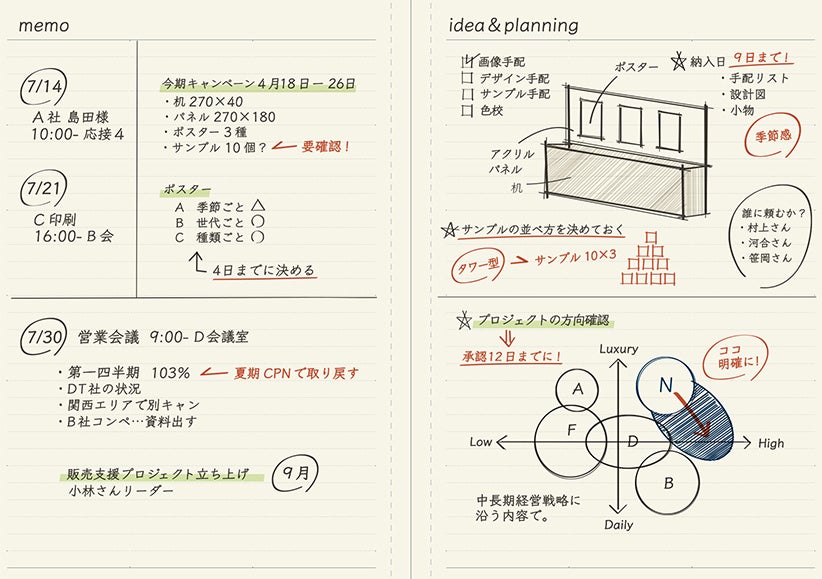 memo
7/14
A社 島田様
10:00- 応接4
今期キャンペーン4月18日ー26日
・机 270×40
・パネル 270×180
・ポスター3種
・サンプル10個？ ← 要確認！
7/21
C印刷
16:00- B会
ポスター
A 季節ごと △
B 世代ごと ○
C 種類ごと ○
4日までに決める
7/30 営業会議 9:00- D会議室
・第一四半期 103% ← 夏期CPNで取り戻す
・DT社の状況
・関西エリアで別キャン
・B社コンペ…資料出す
販売支援プロジェクト立ち上げ 9月
小林さんリーダー
idea & planning
画像手配
デザイン手配
サンプル手配
色校
ポスター
アクリル
パネル
机
☆納入日 9日まで！
・手配リスト
・設計図
・小物
季節感
☆サンプルの並べ方を決めておく
タワー型 → サンプル10×3
誰に頼むか？
・村上さん
・河合さん
・笹岡さん
☆プロジェクトの方向確認
承認12日までに！
ココ
明確に！
Luxury
A
N
F
D
Low
High
B
Daily
中長期経営戦略に
沿う内容で。